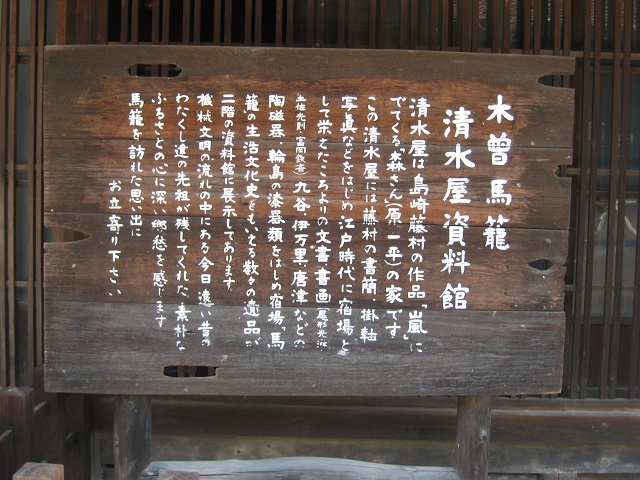 木曽馬籠
清水屋資料館
清水屋は島崎藤村の作品「嵐」に
でてくる「森さん」(原一平)の家です
この清水屋には藤村の書簡、掛軸
写真などをはじめ、江戸時代に宿場と
して栄えたころよりの文書、書画(尾形光琳、
土佐光則・富岡鉄斎)九谷、伊万里、唐津などの
陶磁器、輪島の漆器類をはじめ宿場「馬
籠」の生活文化史ともいえる数々の遺品が
二階の資料館に展示してあります
機械文明の流れの中にある今日遠い昔の
わたくし達の先祖が残してくれた、素朴な
ふるさとの心に深い郷愁を感じます
馬籠を訪れた思い出に
お立寄り下さい